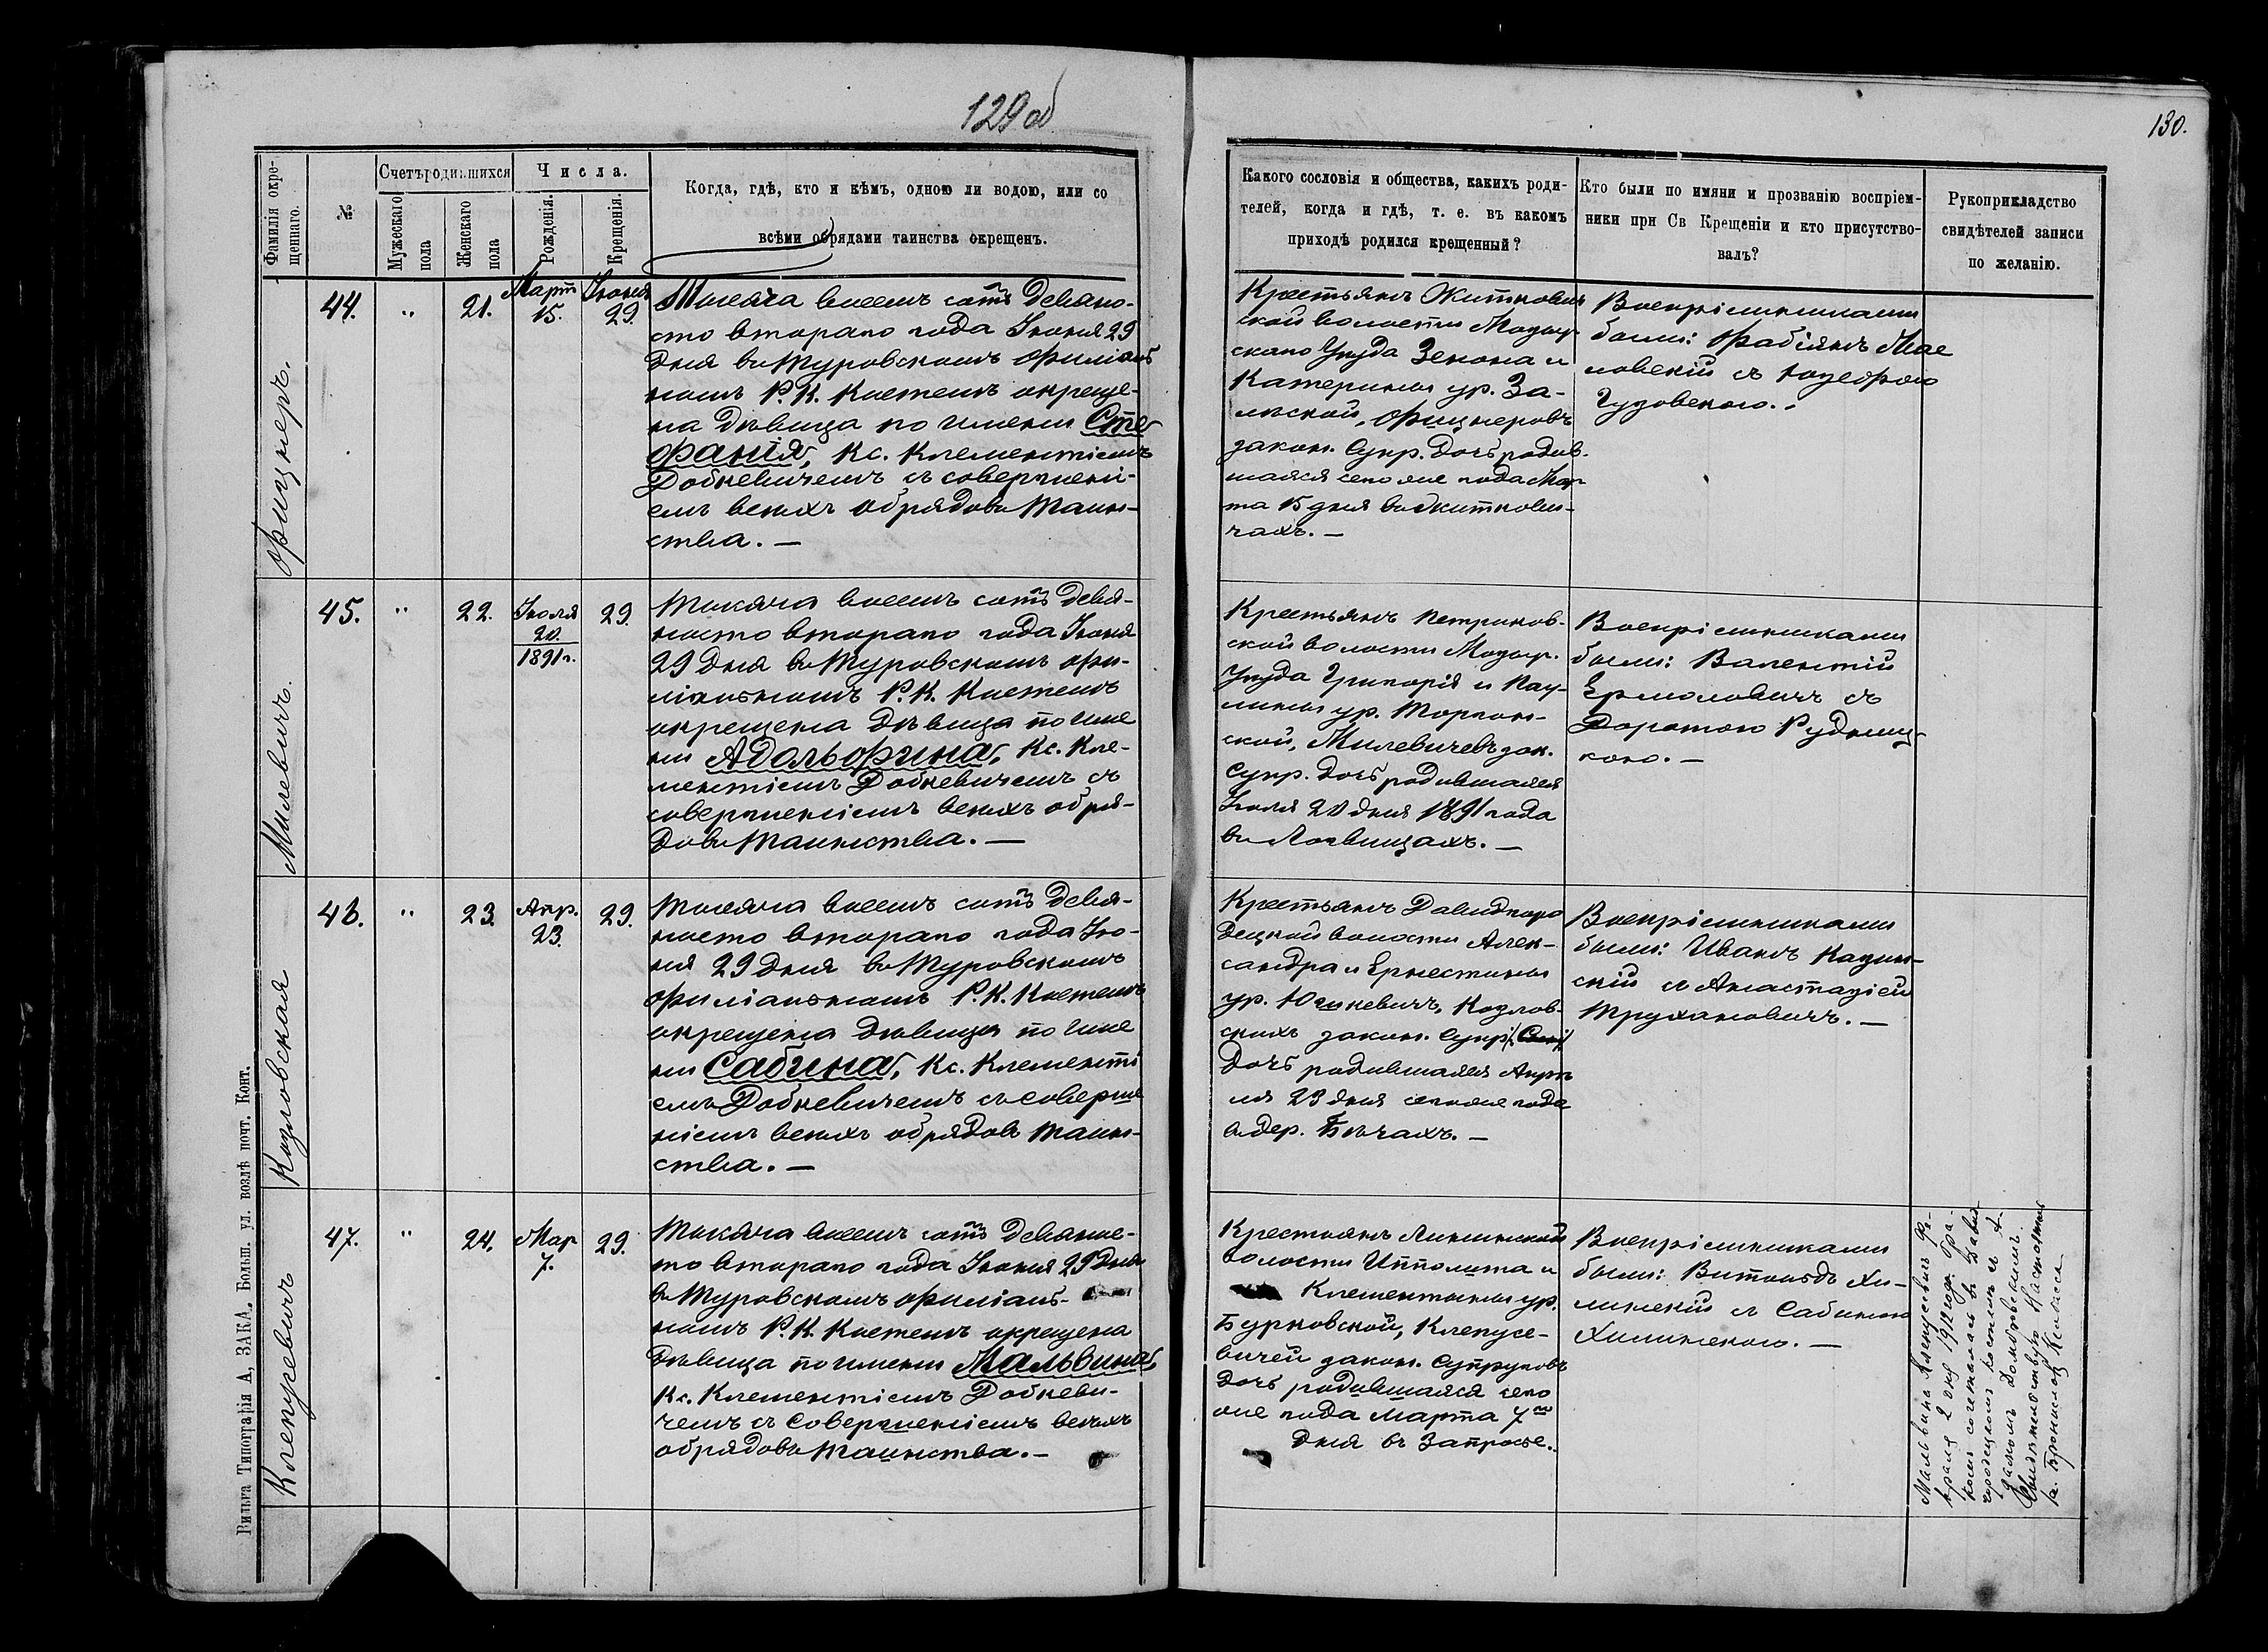 129 об
130.
Фамилія окре-
щеннаго.
№
Счетъ родившихся
Мужескаго
пола
Женскаго
пола
Числа.
Рожденія.
Крещенія.
Когда, гдѣ, кто и кѣмъ, одною ли водою, или со
всѣми обрядами таинства окрещенъ.
Какого сословія и общества, какихъ роди-
телей, когда и гдѣ, т. е. въ какомъ
приходѣ родился крещенный?
Кто были по имяни и прозванію воспріем-
ники при Св Крещеніи и кто присутство-
валъ?
Рукоприкладство
свидѣтелей записи
по желанію.
Фрицнеръ.
44.
„
21.
Март
15.
Іюня
29.
Тысяча восемь сотъ девяно-
сто втораго года Іюня 29
дня въ Туровскомъ филіаль
номъ Р. К. Костелѣ окреще-
на дѣвица по имени Сте
фанія, Кс. Клементіемъ
Добкевичемъ съ совершені-
емъ всѣхъ обрядовъ таин-
ства. —
Крестьянъ Житкович
ской волости Мозыр-
скаго Уѣзда Зенона и
Катерины ур. За-
лѣской, Фрицнеровъ
закон. Супр. дочь родив-
шаяся сего же года Мар
та 15 дня въ Житкови-
чахъ. —
Воспріемниками
были: Фабіянъ Мас
ловскій съ Юзефою
Гудовскою. -
Милевичъ.
45.
„
22.
Іюля
20.
1891 г.
29.
Тысяча восемь сотъ девя-
носто втораго года Іюня
29 дня въ Туровскомъ фи-
ліальномъ Р. К. Костелѣ
окрещена дѣвица по име
ни Адольфина, Кс. Кле-
ментіемъ Добкевичемъ съ
совершеніемъ всѣхъ обря-
довъ таинства. —
Крестьянъ Петриков-
ской волости Мозыр.
Уѣзда Григорія и Пау-
лины ур. Торгон-
ской, Милевичевъ зак.
Супр. дочь родившаяся
Іюля 20 дня 1891 года
въ Лясвицахъ. —
Воспріемниками
были: Валентій
Ермоловичъ съ
Доротою Рудниц-
кою. —
Козловская
46.
„
23.
Апр.
23.
29.
Тысяча восемь сотъ девя-
носто втораго года Ію-
ня 29 дня въ Туровскомъ
филіальномъ Р. К. Костелѣ
окрещена дѣвица по име
ни Сабина, Кс. Клементі
емъ Добкевичемъ съ соверше
ніемъ всѣхъ обрядовъ таин-
ства. —
Крестьянъ Давидгоро
децкой волости Алек-
сандра и Ернестины
ур. Юцкевичъ, Козлов-
скихъ закон. Супр.
дочь родившаяся Апрѣ
ля 23 дня сего же года
въ дер. Бѣчахъ. —
Воспріемниками
были: Иванъ Казин-
скій съ Анастазіей
Трухановичъ. —
Клепусевичъ
47.
„
24.
Мар
7.
29.
Тысяча восемь сотъ девянос-
то втораго года Іюня 29 дня
въ Туровскомъ филіаль-
номъ Р. К. Костелѣ окрещена
дѣвица по имени Мальвина,
Кс. Клементіемъ Добкеви-
чемъ съ совершеніемъ всѣхъ
обрядовъ таинства. —
Крестьянъ Ленинской
волости Ипполита и
Клементины ур.
Бурковской, Клепусе-
вичей закон. Супруговъ
дочь родившаяся сего
же года Марта 7го
дня въ Запросье.
Воспріемниками
были: Витольдъ Хи-
линскій съ Сабиною
Хилинскою. —
Мальвина Клепусевичъ Фе-
враля 2 дня 1912 года бра-
комъ сочеталась въ Давид
городецкомъ костелѣ съ А-
дамомъ Домбровскимъ.
Свидѣтельствуетъ Настоятель
Вильна Типографія А, ЗАКА, Больш. ул. возлѣ почт. Конт.